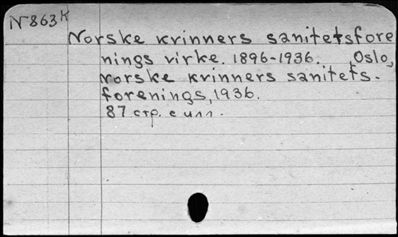 N 863 K
Norske kvinners sanitetsfore
nings virke. 1896-1936. Oslo,
Norske kvinners sanitets-
forenings, 1936.
87 стр. с илл.